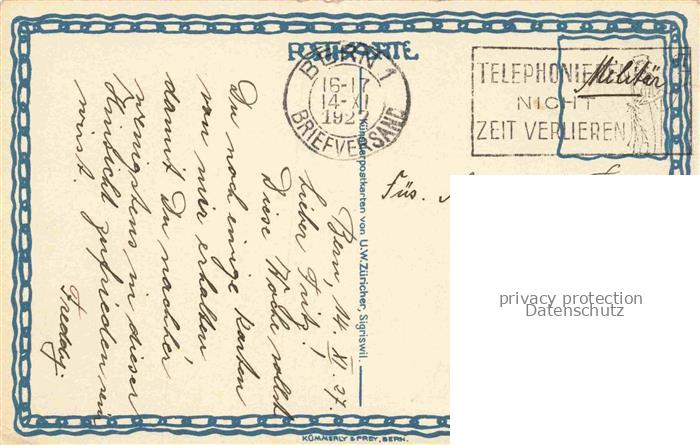 POSTKARTE
BERN 1
16-17
14·XI
1927
BRIEFVERSAND
TELEPHONIEREN
NICHT
ZEIT VERLIEREN
Militär
Bern, 14. XI. 27.
Lieber Fritz!
Diese Woche sollst
Du noch einige Karten
von mir erhalten
damit Du nachher
wenigstens in dieser
Hinsicht zufrieden sein
wirst.
Freddy.
Füs.
Künstlerpostkarten von U.W.Züricher, Sigriswil.
privacy protection
Datenschutz
KÜMMERLY & FREY, BERN.